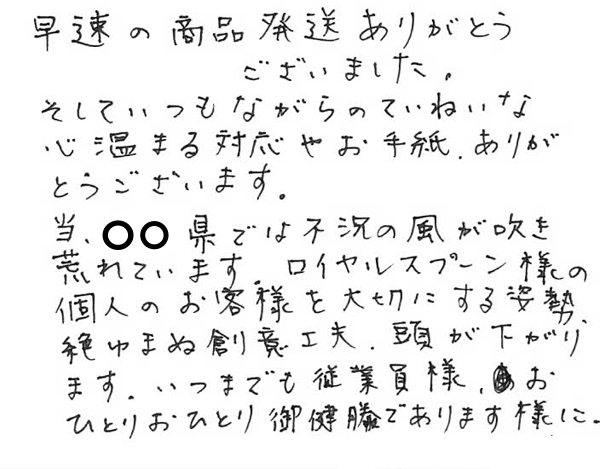 早速の商品発送ありがとう
ございました。
そしていつもながらのていねいな
心温まる対応やお手紙、ありが
とうございます。
当、〇〇県では不況の風が吹き
荒れています。ロイヤルスプーン様の
個人のお客様を大切にする姿勢、
絶ゆまぬ創意工夫、頭が下がり
ます。いつまでも従業員様、お
ひとりおひとり御健勝であります様に。